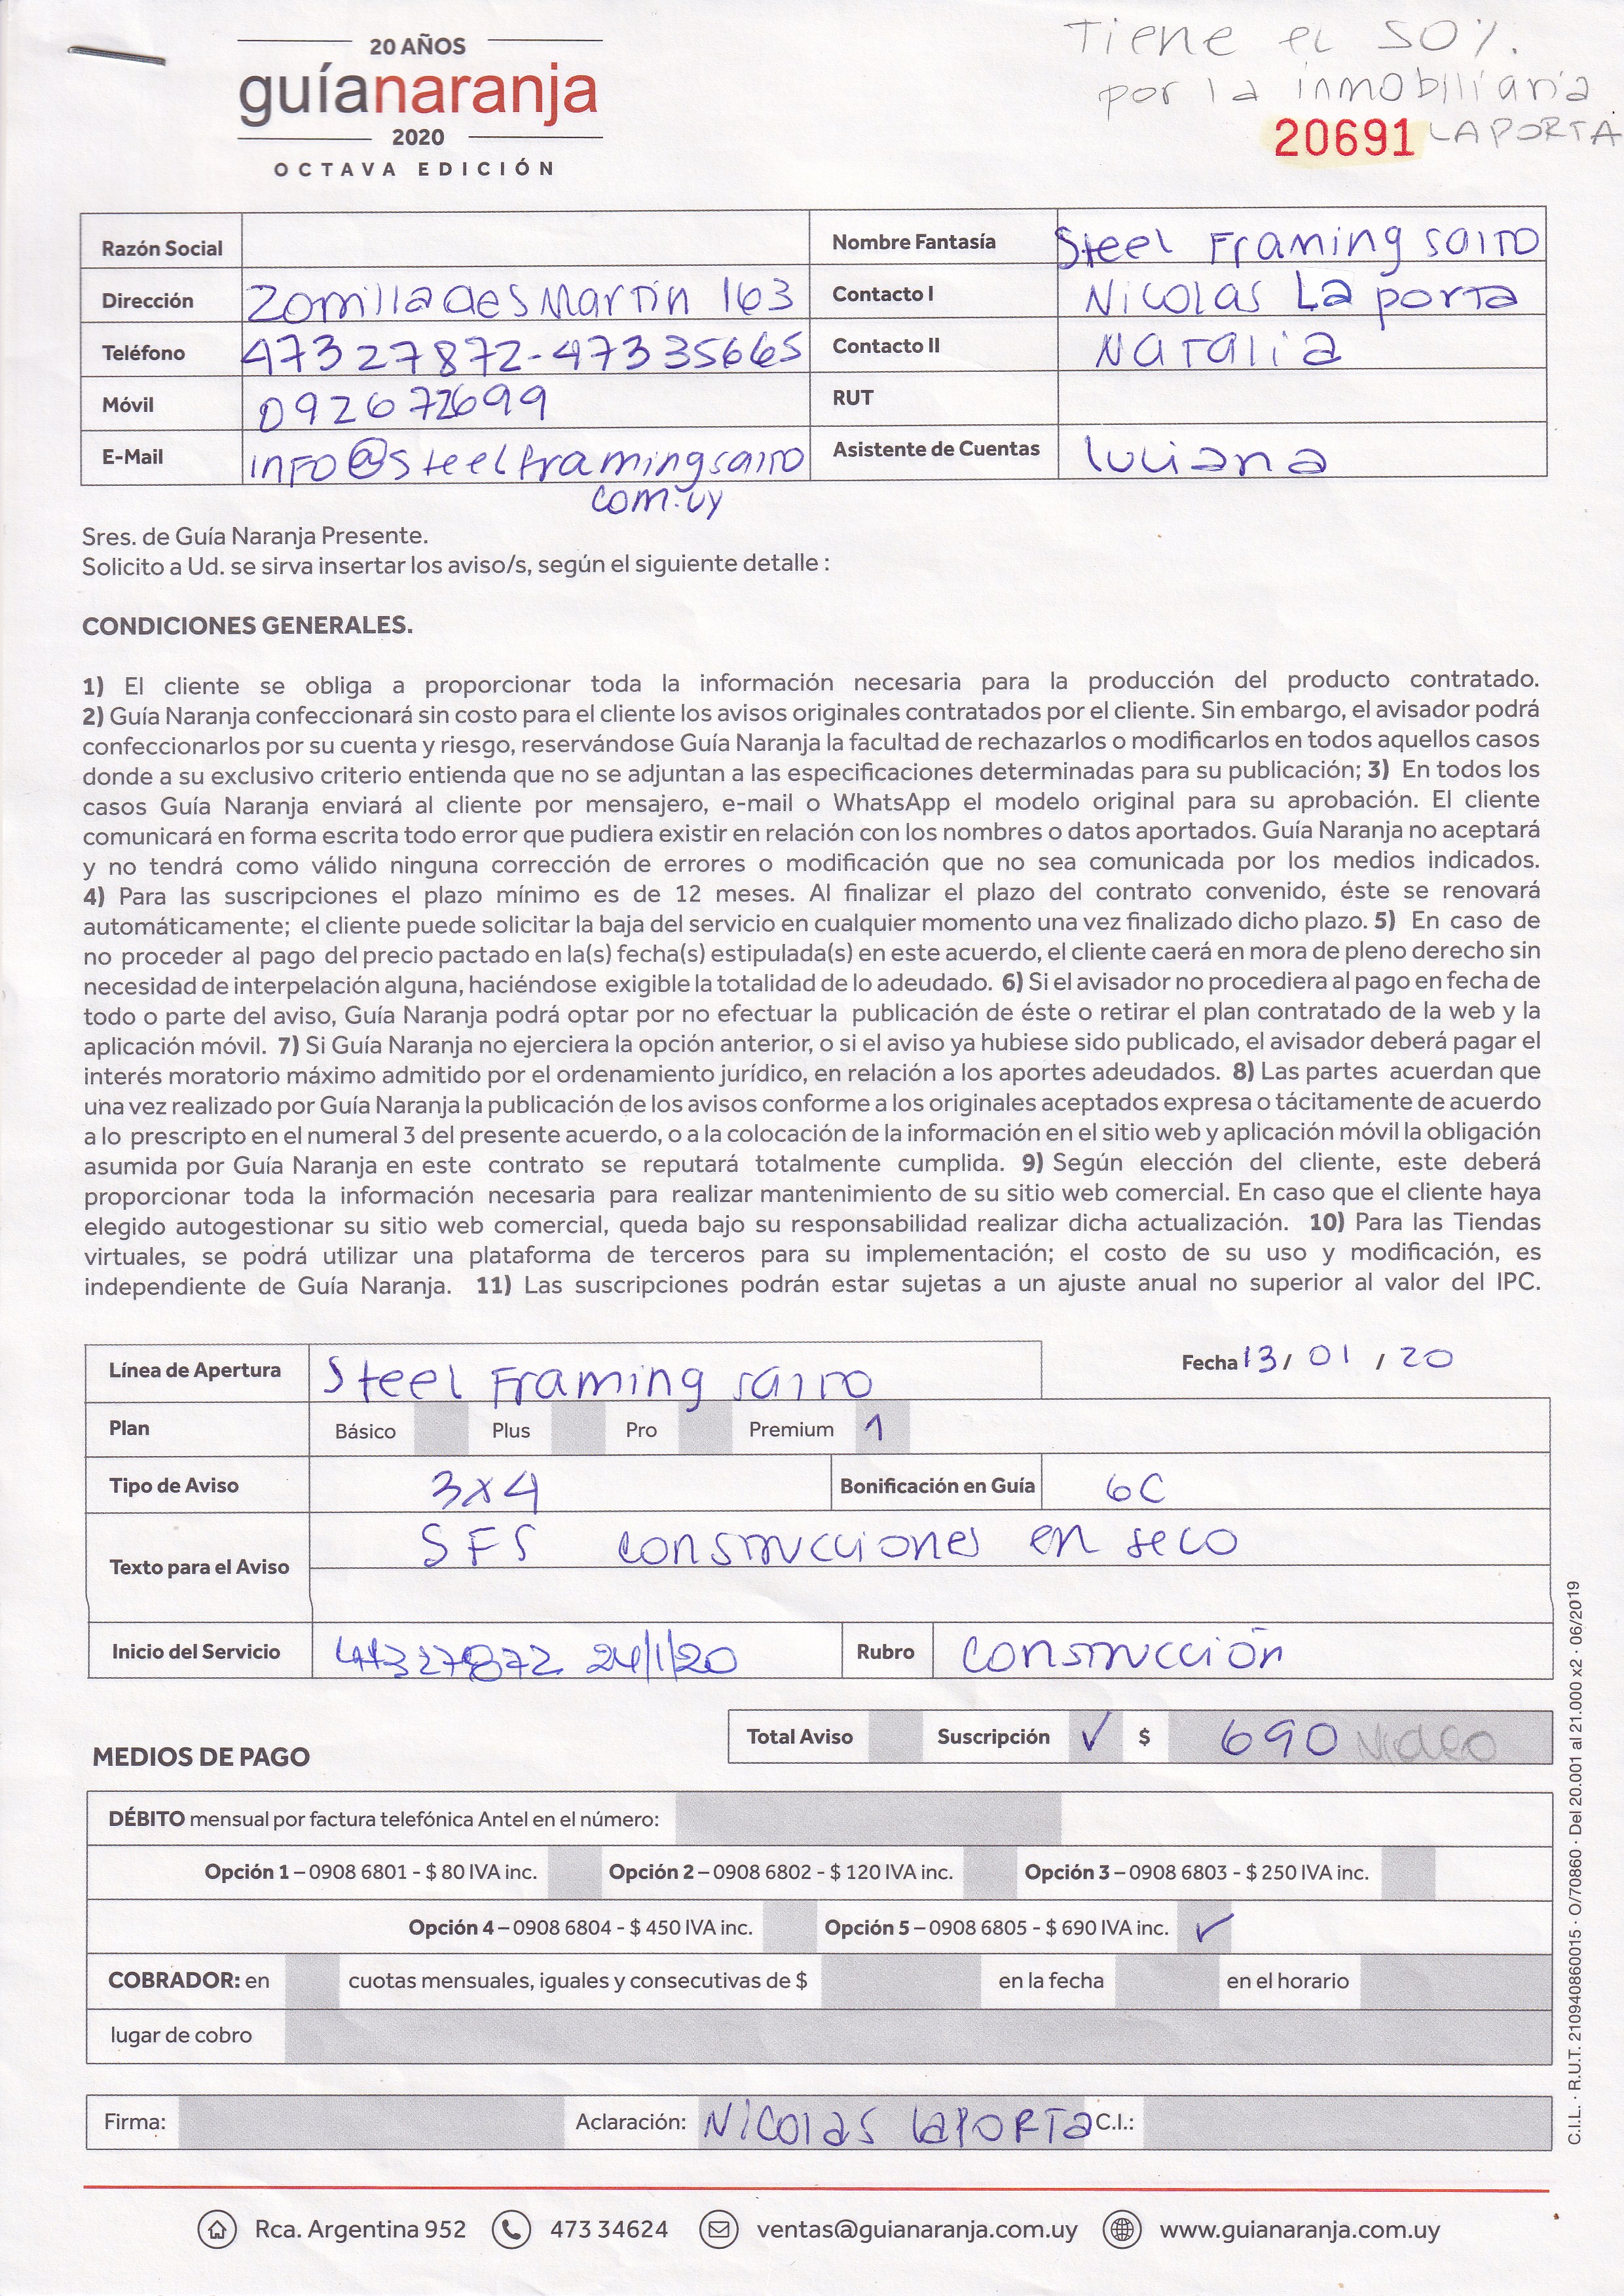 20 AÑOS
guíanaranja
2020
OCTAVA EDICIÓN
Tiene el 50%.
por la inmobiliaria
20691 LAPORTA
Razón Social
Nombre Fantasía Steel Framing salto
Dirección Zorrilla de S Martín 163
Contacto I Nicolas La porta
Teléfono 47327872-47335665
Contacto II Natalia
Móvil 092672699
RUT
E-Mail info@steelframingsalto
com.uy
Asistente de Cuentas luciana
Sres. de Guía Naranja Presente.
Solicito a Ud. se sirva insertar los aviso/s, según el siguiente detalle :
CONDICIONES GENERALES.
1) El cliente se obliga a proporcionar toda la información necesaria para la producción del producto contratado.
2) Guía Naranja confeccionará sin costo para el cliente los avisos originales contratados por el cliente. Sin embargo, el avisador podrá
confeccionarlos por su cuenta y riesgo, reservándose Guía Naranja la facultad de rechazarlos o modificarlos en todos aquellos casos
donde a su exclusivo criterio entienda que no se adjuntan a las especificaciones determinadas para su publicación; 3) En todos los
casos Guía Naranja enviará al cliente por mensajero, e-mail o WhatsApp el modelo original para su aprobación. El cliente
comunicará en forma escrita todo error que pudiera existir en relación con los nombres o datos aportados. Guía Naranja no aceptará
y no tendrá como válido ninguna corrección de errores o modificación que no sea comunicada por los medios indicados.
4) Para las suscripciones el plazo mínimo es de 12 meses. Al finalizar el plazo del contrato convenido, éste se renovará
automáticamente; el cliente puede solicitar la baja del servicio en cualquier momento una vez finalizado dicho plazo. 5) En caso de
no proceder al pago del precio pactado en la(s) fecha(s) estipulada(s) en este acuerdo, el cliente caerá en mora de pleno derecho sin
necesidad de interpelación alguna, haciéndose exigible la totalidad de lo adeudado. 6) Si el avisador no procediera al pago en fecha de
todo o parte del aviso, Guía Naranja podrá optar por no efectuar la publicación de éste o retirar el plan contratado de la web y la
aplicación móvil. 7) Si Guía Naranja no ejerciera la opción anterior, o si el aviso ya hubiese sido publicado, el avisador deberá pagar el
interés moratorio máximo admitido por el ordenamiento jurídico, en relación a los aportes adeudados. 8) Las partes acuerdan que
una vez realizado por Guía Naranja la publicación de los avisos conforme a los originales aceptados expresa o tácitamente de acuerdo
a lo prescripto en el numeral 3 del presente acuerdo, o a la colocación de la información en el sitio web y aplicación móvil la obligación
asumida por Guía Naranja en este contrato se reputará totalmente cumplida. 9) Según elección del cliente, este deberá
proporcionar toda la información necesaria para realizar mantenimiento de su sitio web comercial. En caso que el cliente haya
elegido autogestionar su sitio web comercial, queda bajo su responsabilidad realizar dicha actualización. 10) Para las Tiendas
virtuales, se podrá utilizar una plataforma de terceros para su implementación; el costo de su uso y modificación, es
independiente de Guía Naranja. 11) Las suscripciones podrán estar sujetas a un ajuste anual no superior al valor del IPC.
Línea de Apertura Steel Framing salto
Fecha 13 / 01 / 20
Plan Básico Plus Pro Premium 1
Tipo de Aviso 3x4 Bonificación en Guía 6C
Texto para el Aviso SFS construcciones en seco
Inicio del Servicio 47327872 24/1/20 Rubro construcción
Total Aviso Suscripción ✓ $ 690 video
MEDIOS DE PAGO
DÉBITO mensual por factura telefónica Antel en el número:
Opción 1 – 0908 6801 - $ 80 IVA inc. Opción 2 – 0908 6802 - $ 120 IVA inc. Opción 3 – 0908 6803 - $ 250 IVA inc.
Opción 4 – 0908 6804 - $ 450 IVA inc. Opción 5 – 0908 6805 - $ 690 IVA inc. ✓
COBRADOR: en cuotas mensuales, iguales y consecutivas de $ en la fecha en el horario
lugar de cobro
Firma: Aclaración: Nicolas LaPORTa C.I.:
C.I.L. · R.U.T. 210940860015 · O/70860 · Del 20.001 al 21.000 x2 · 06/2019
Rca. Argentina 952 473 34624 ventas@guianaranja.com.uy www.guianaranja.com.uy